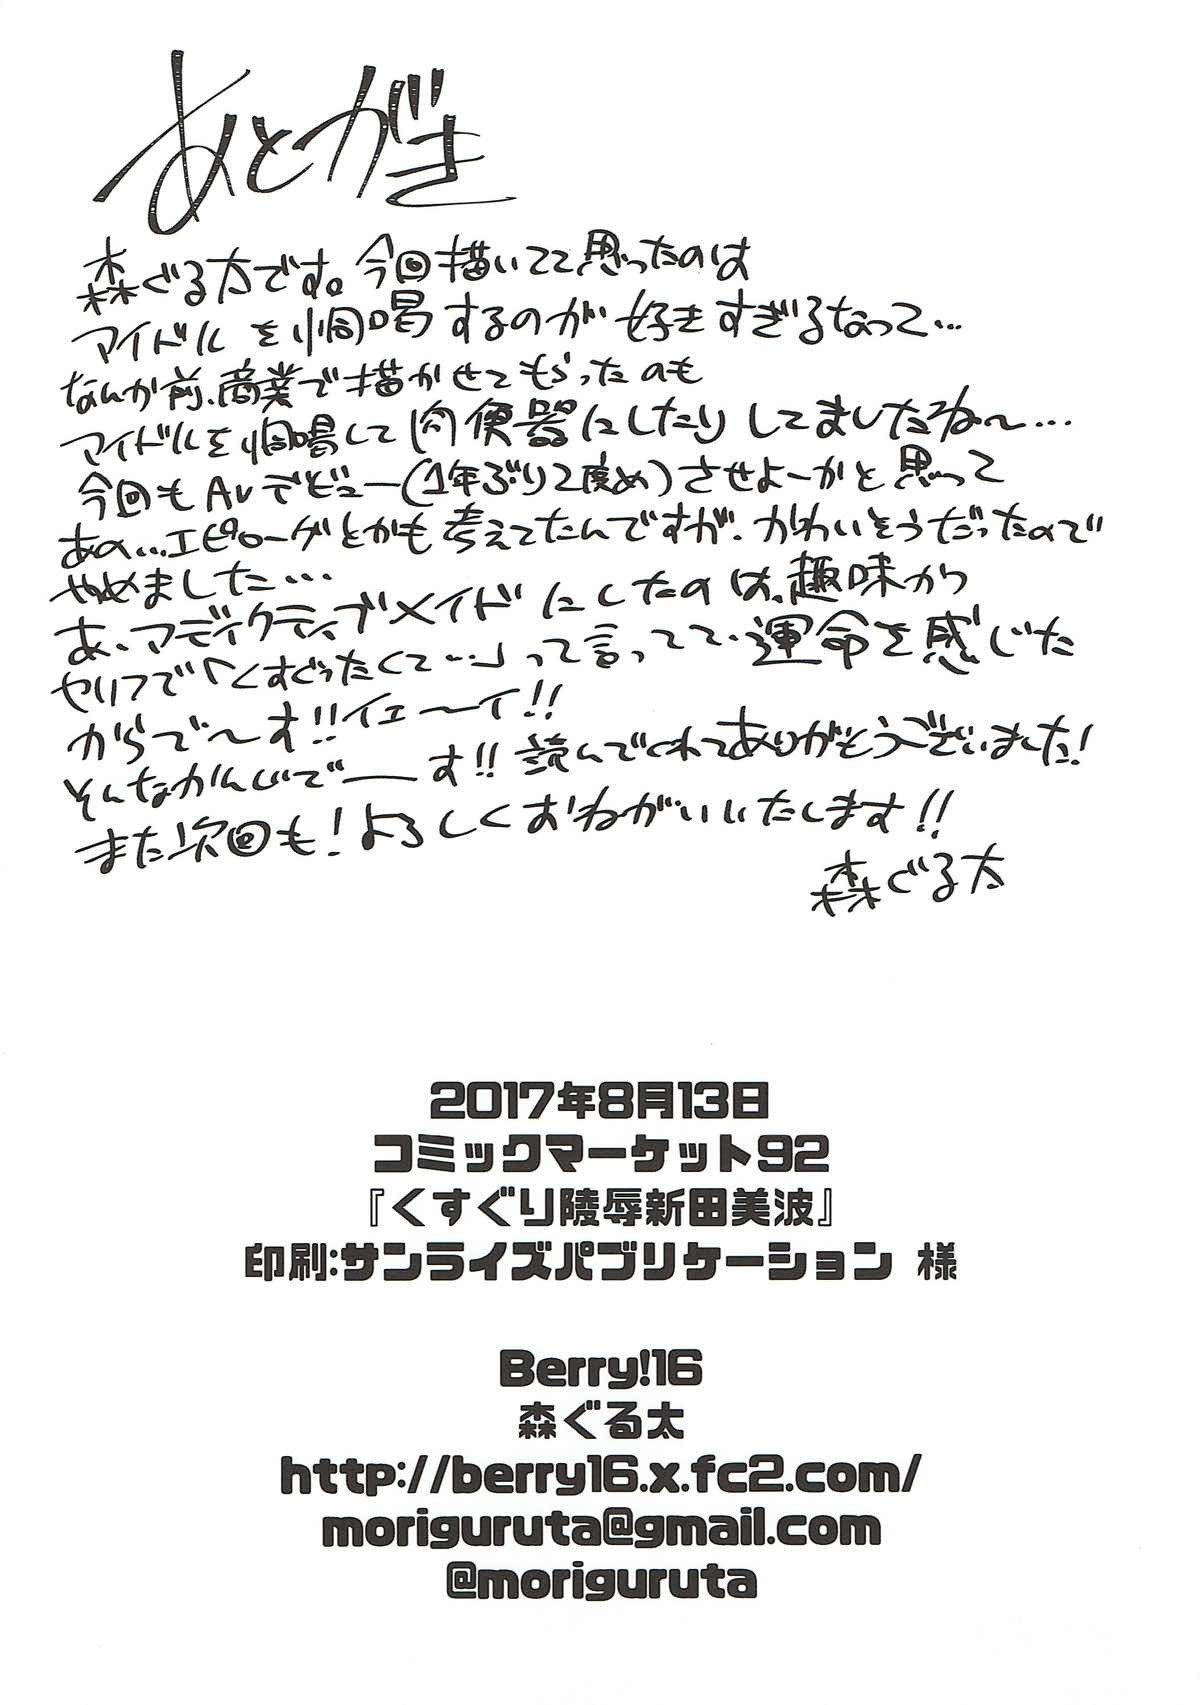 あとがき
森ぐる太です。今回描いてて思ったのは
アイドルを恫喝するのが好きすぎるなって…
なんか前、商業で描かせてもらったのも
アイドルを恫喝して肉便器にしたりしてましたね〜…
今回もAVデビュー(1年ぶり2度め)させよーかと思って
あの…エピローグとかも考えてたんですが、かわいそうだったので
やめました…
あ、アディクティブメイドにしたのは、趣味から
セリフで「くすぐったくて…」って言ってて、運命を感じた
からで〜す!!イェ〜イ!!
そんなかんじで──す!!読んでくれてありがとうございました!
また次回も!よろしくおねがいいたします!!
森ぐる太
2017年8月13日
コミックマーケット92
『くすぐり陵辱新田美波』
印刷:サンライズパブリケーション 様
Berry!16
森ぐる太
http://berry16.x.fc2.com/
moriguruta@gmail.com
@moriguruta